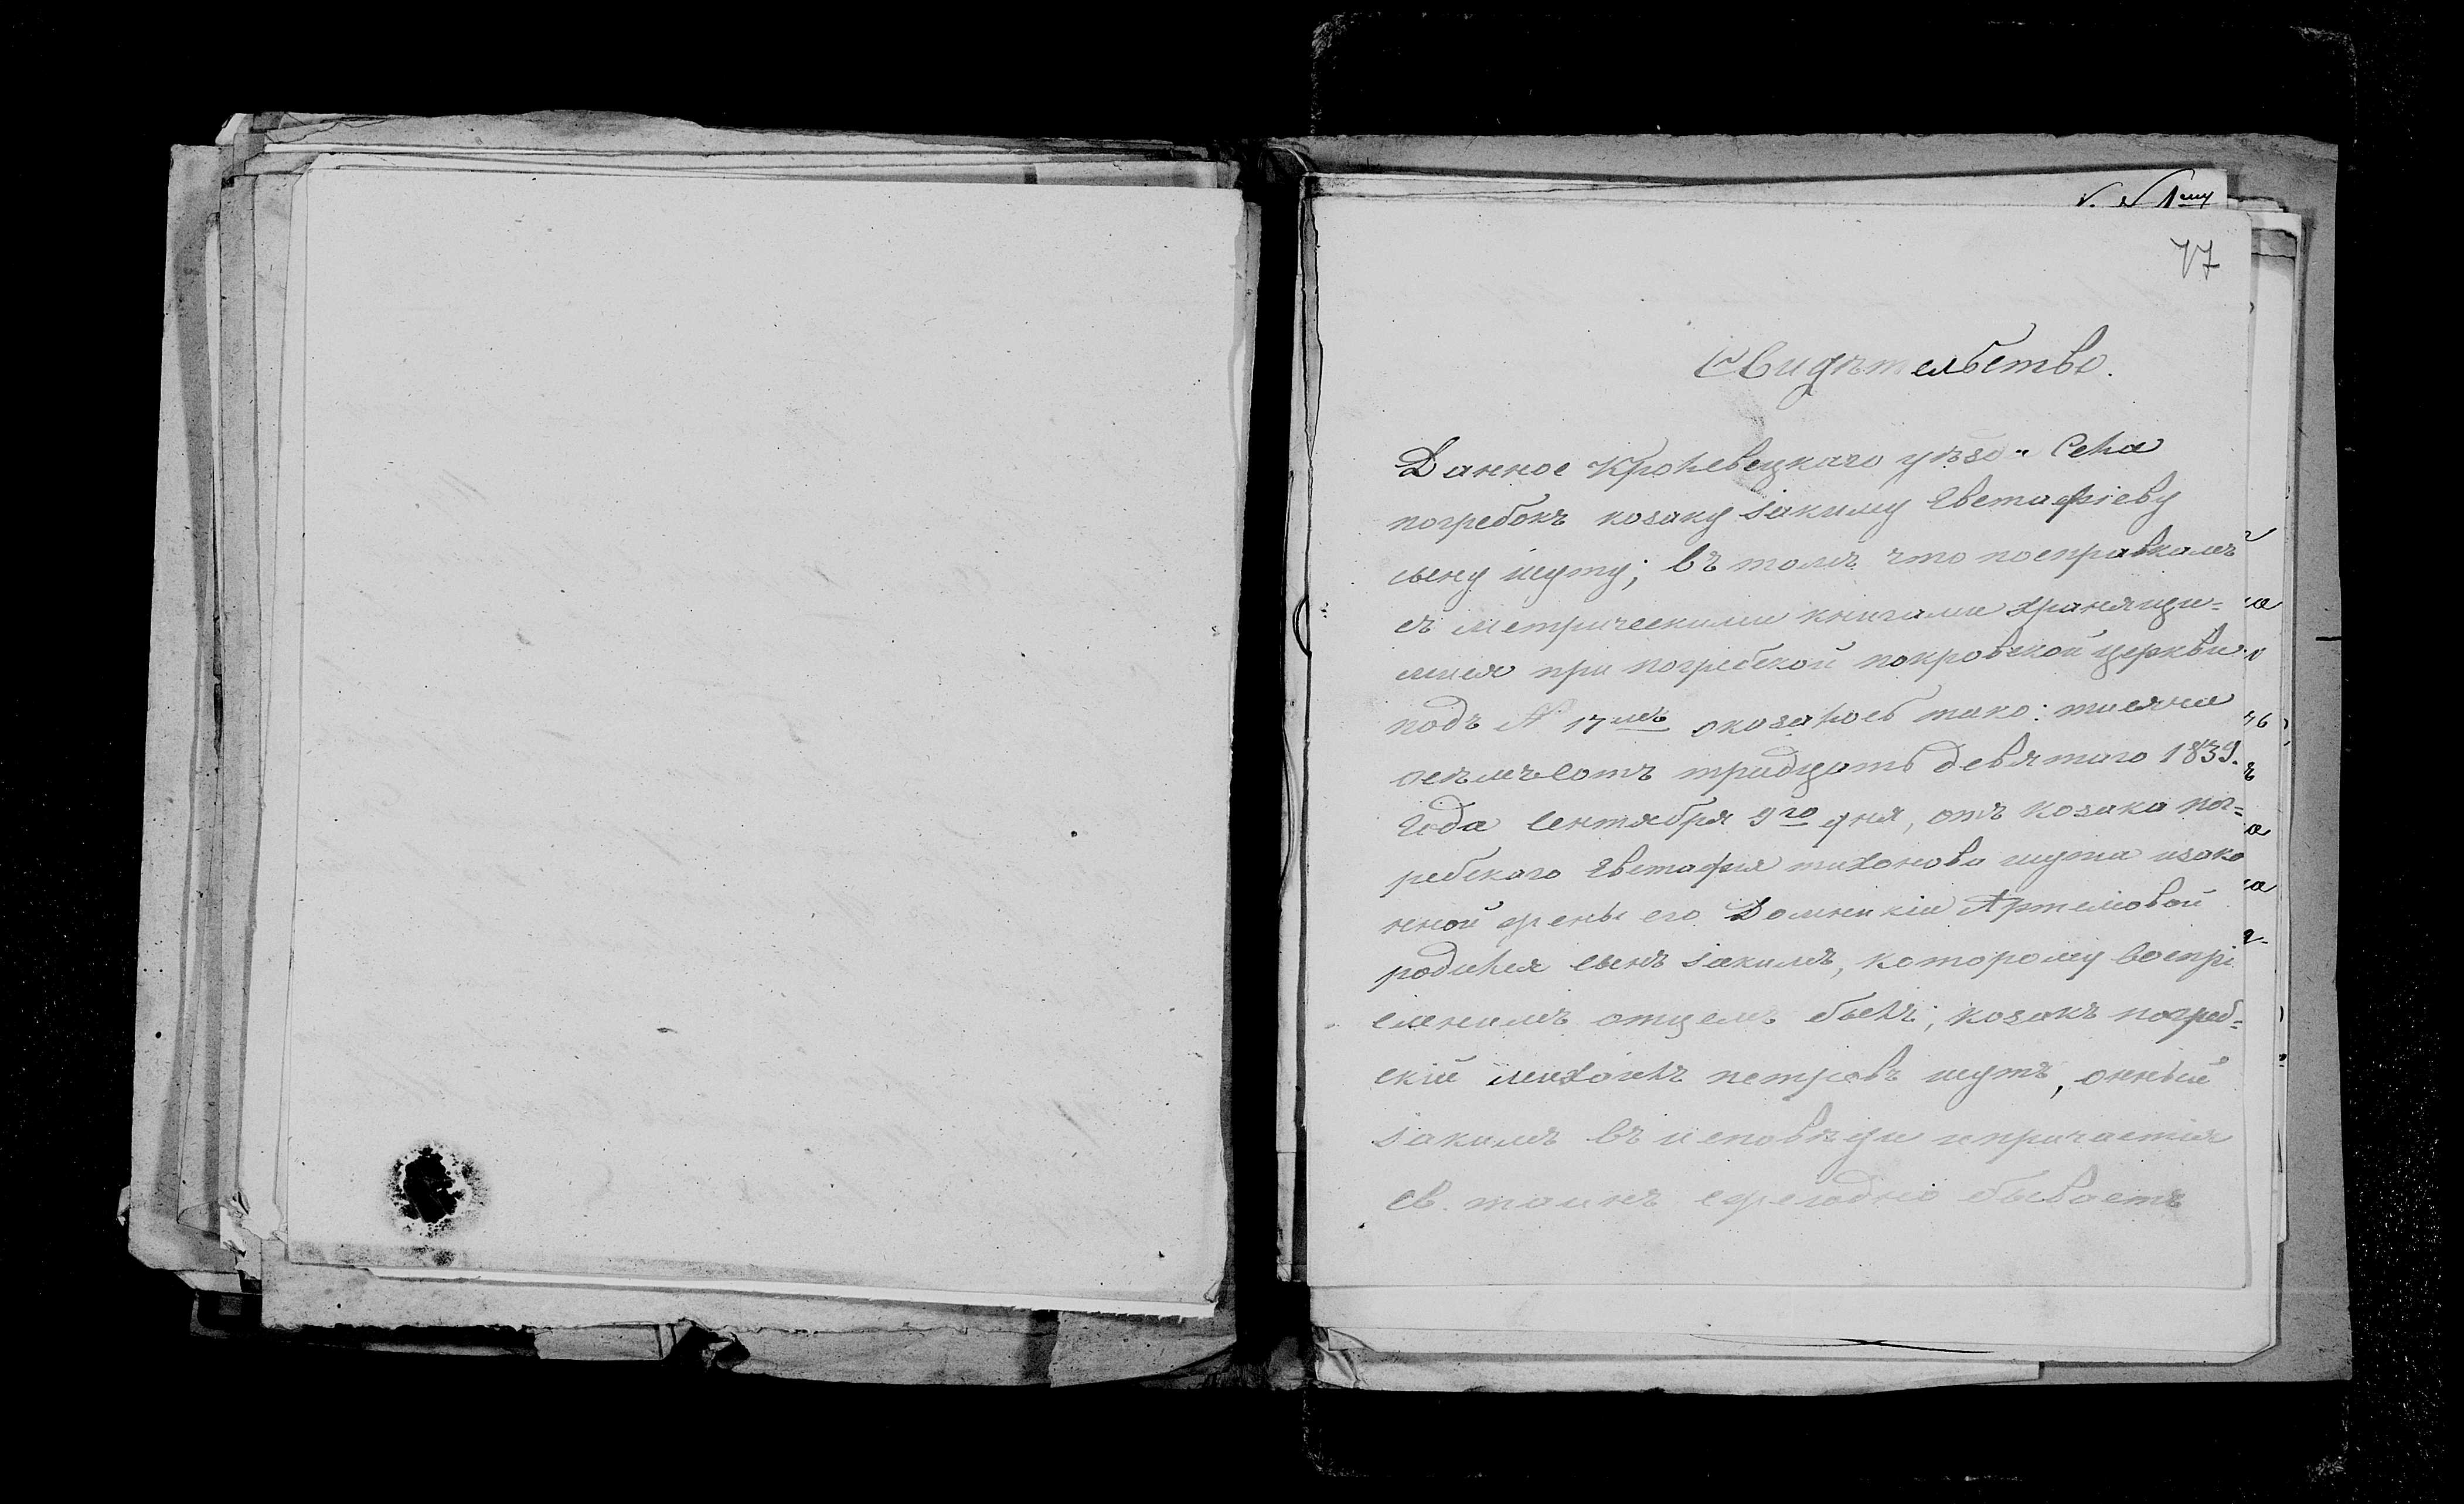 77
Свидѣтельство.
Данное Кролевецкаго уѣзда Села
погребокъ козаку Iакиму Евстафіеву
сыну шуту; въ томъ что посправкамъ
съ метрическими книгами хранящи=
мися при погребской покровской церкви
подъ № 17мъ оказалось тако: тисяча
осѣмъсотъ тридцать девятаго 1839.
Года Сентября 9го дня, отъ козака пог=
ребскаго Евстафия тихонова шута изако
нной жены его Домникіи Артемовой
родился сынъ Iакимъ, которому воспрі
емнимъ отцемъ былъ; козакъ погреб=
скій михаилъ петровъ шутъ, онный
Iакимъ въ исповѣди и причастія
св. таинъ ежегодно бываетъ